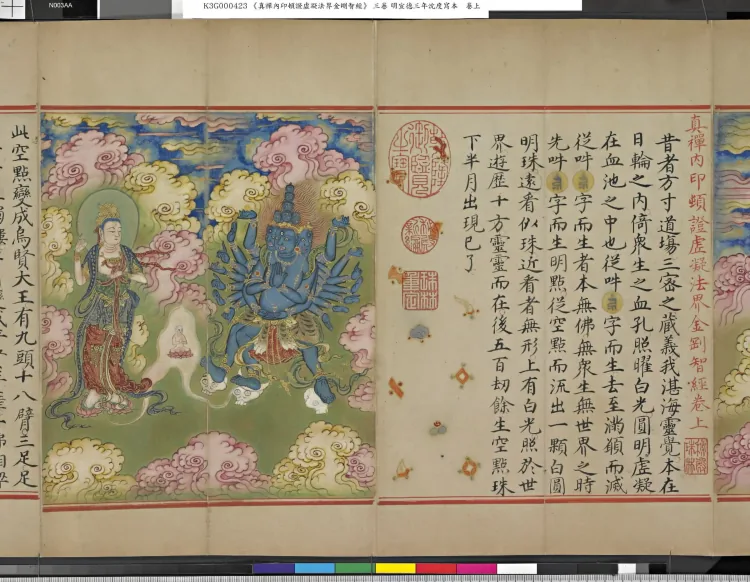 N003AA
K3G000423 《真禪內印頓證虛凝法界金剛智經》 三卷 明宣德三年沈度寫本 卷上
真禪內印頓證虛凝法界金剛智經卷上
昔者方寸道場三密之藏義我湛海靈覺本在
日輪之內倚眾生之血孔照曜白光圓明虛凝
在血池之中也從吽字而生去至滿顖而滅
從吽字而生者本無佛無眾生無世界之時
先吽字而生明點從空點而流出一顆白圓
明珠遠看似珠近看者無形上有白光照於世
界遊歷十方靈靈而在後五百劫餘生空點珠
下半月出現已了
此空點變成烏賢大王有九頭十八臂三足足